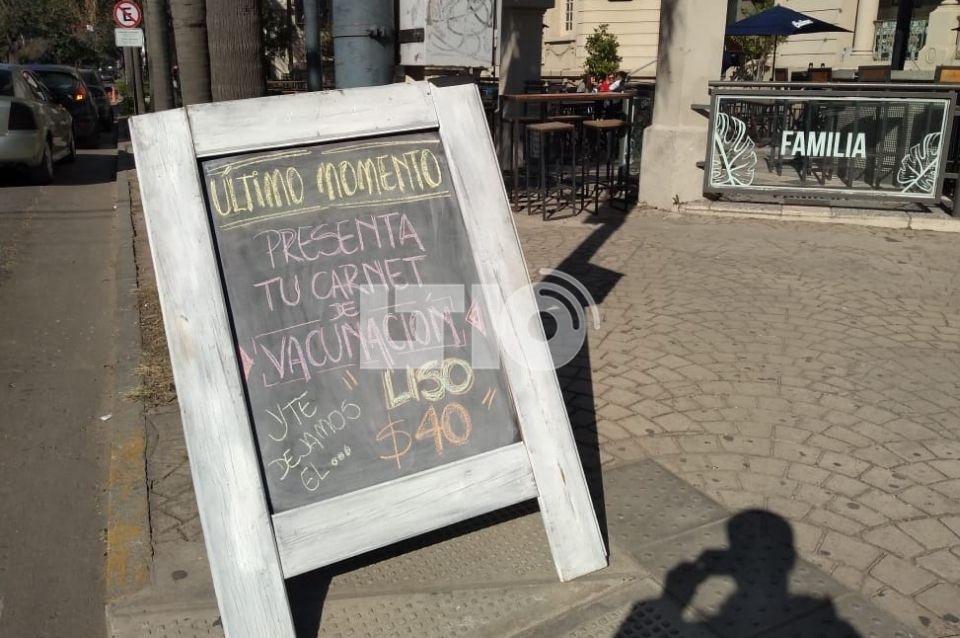 ÚLTIMO MOMENTO
PRESENTA
TU CARNET
DE
VACUNACIÓN
Y TE
DEJAMOS
EL...
"LISO"
$40
FAMILIA
E
LT10